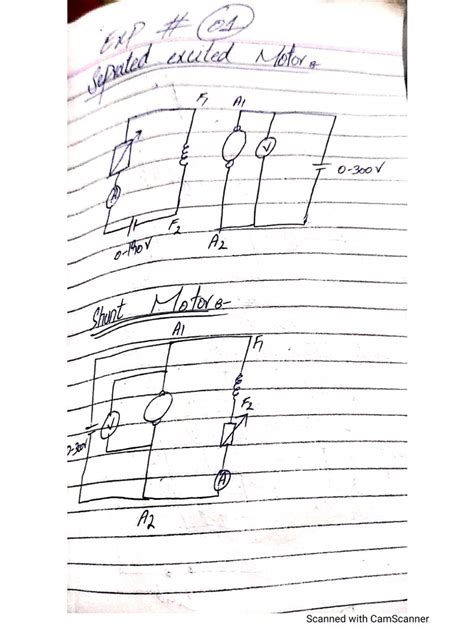 EXP # 01
Seprated excited Motor :-
F1 A1
A
V
0-300V
F2
0-190V
A2
Shunt Motor :-
A1
F1
F2
V
A
A2
Scanned with CamScanner